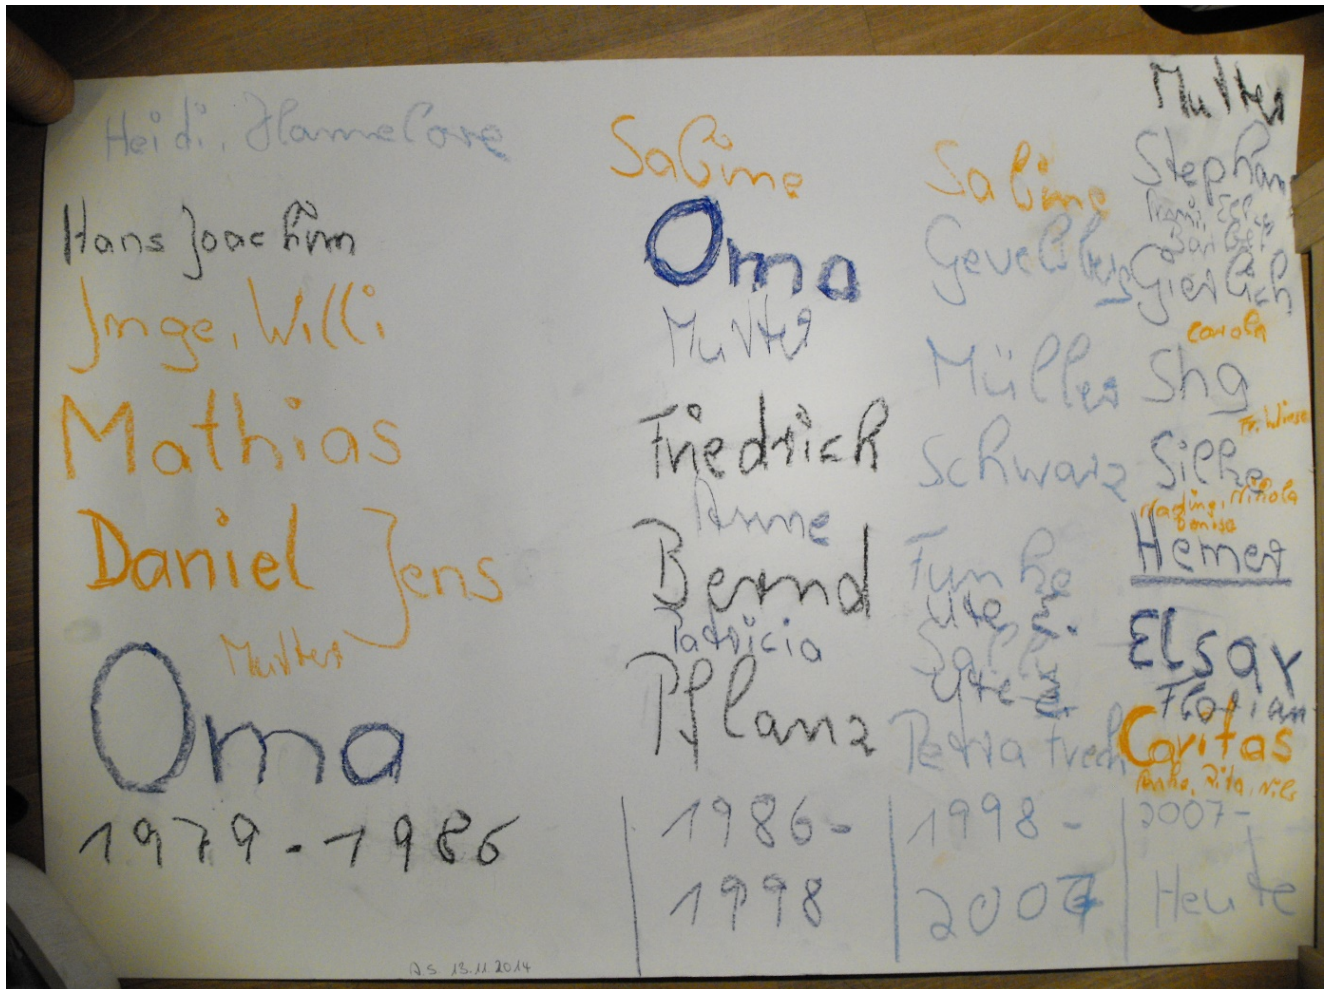 Heidi, Hannelore
Hans Joachim
Inge, Willi
Mathias
Daniel Jens
Mutter
Oma
1979-1986
Sabine
Oma
Mutter
Friedrich
Anne
Bernd
Patricia
Pflanz
1986-
1998
Sabine
Gevelsberg
Müller
Schwarz
Funke
Ute
Petra Frech
1998-
2007
Mutter
Stephan
Gierlich
Carola
Shg
Fr. Wiese
Silke
Nadine, Nikola
Denise
Hemer
Elsar
Florian
Caritas
Anke, Rita, Nils
2007-
Heute
A.S 13.11.2014